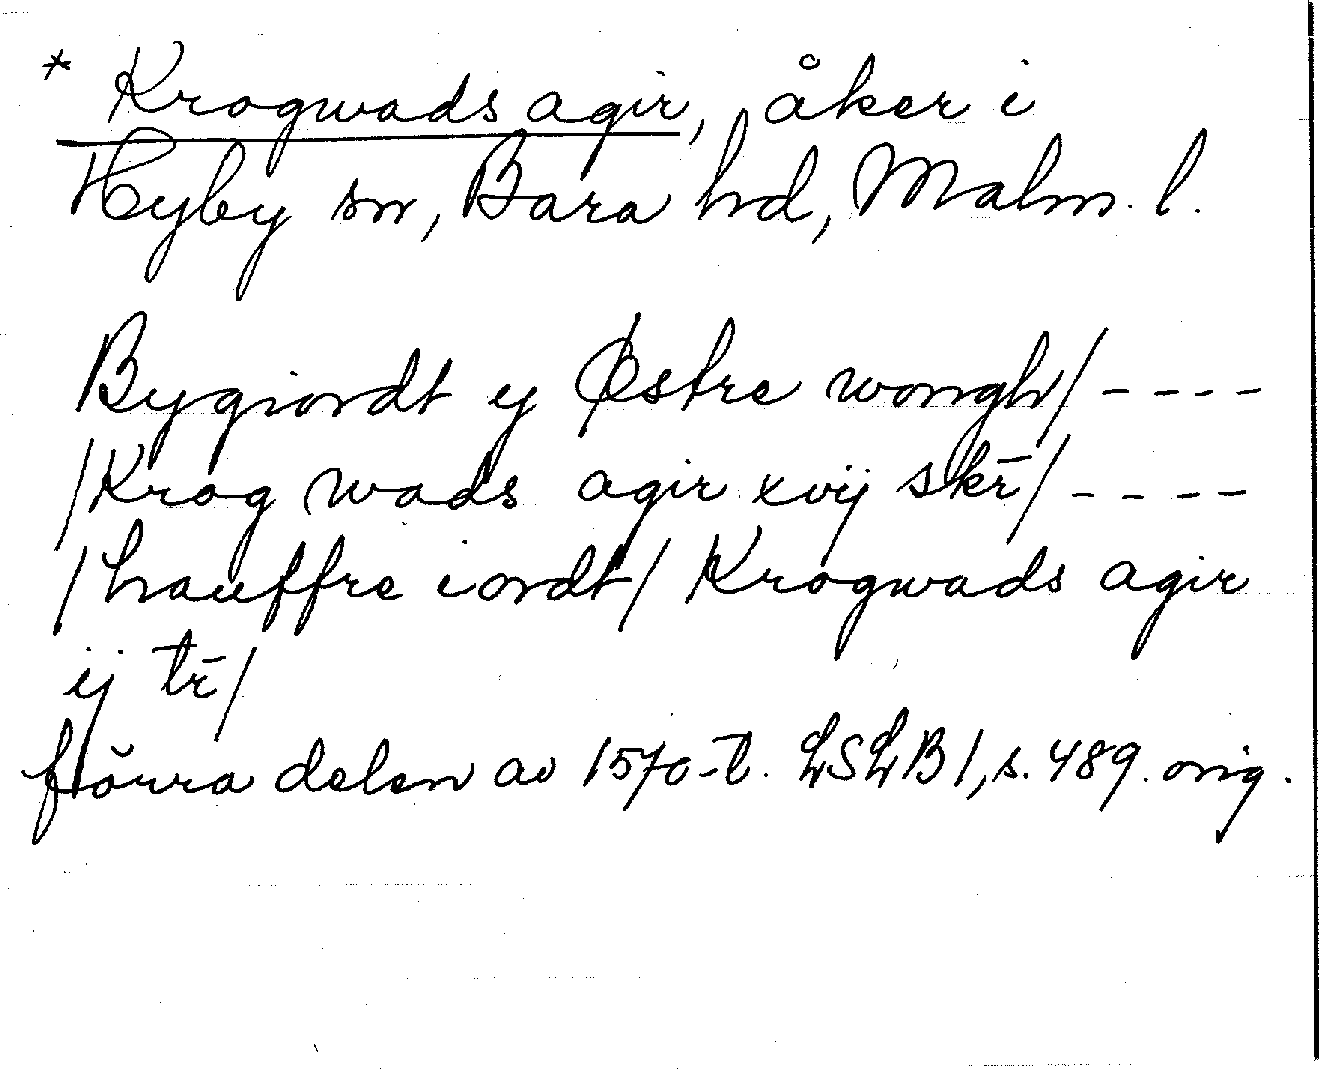 * Krogwads agir, åker i
Hyby sn, Bara hd, Malm. l.
Bygiordt y Østre wongh/ - - - -
/Krog wads agir xvij skr̄/ - - - -
/hauffre iordt/ Krogwads agir
ij tr̄/
förra delen av 1570-t. LSLB 1, s. 489. orig.